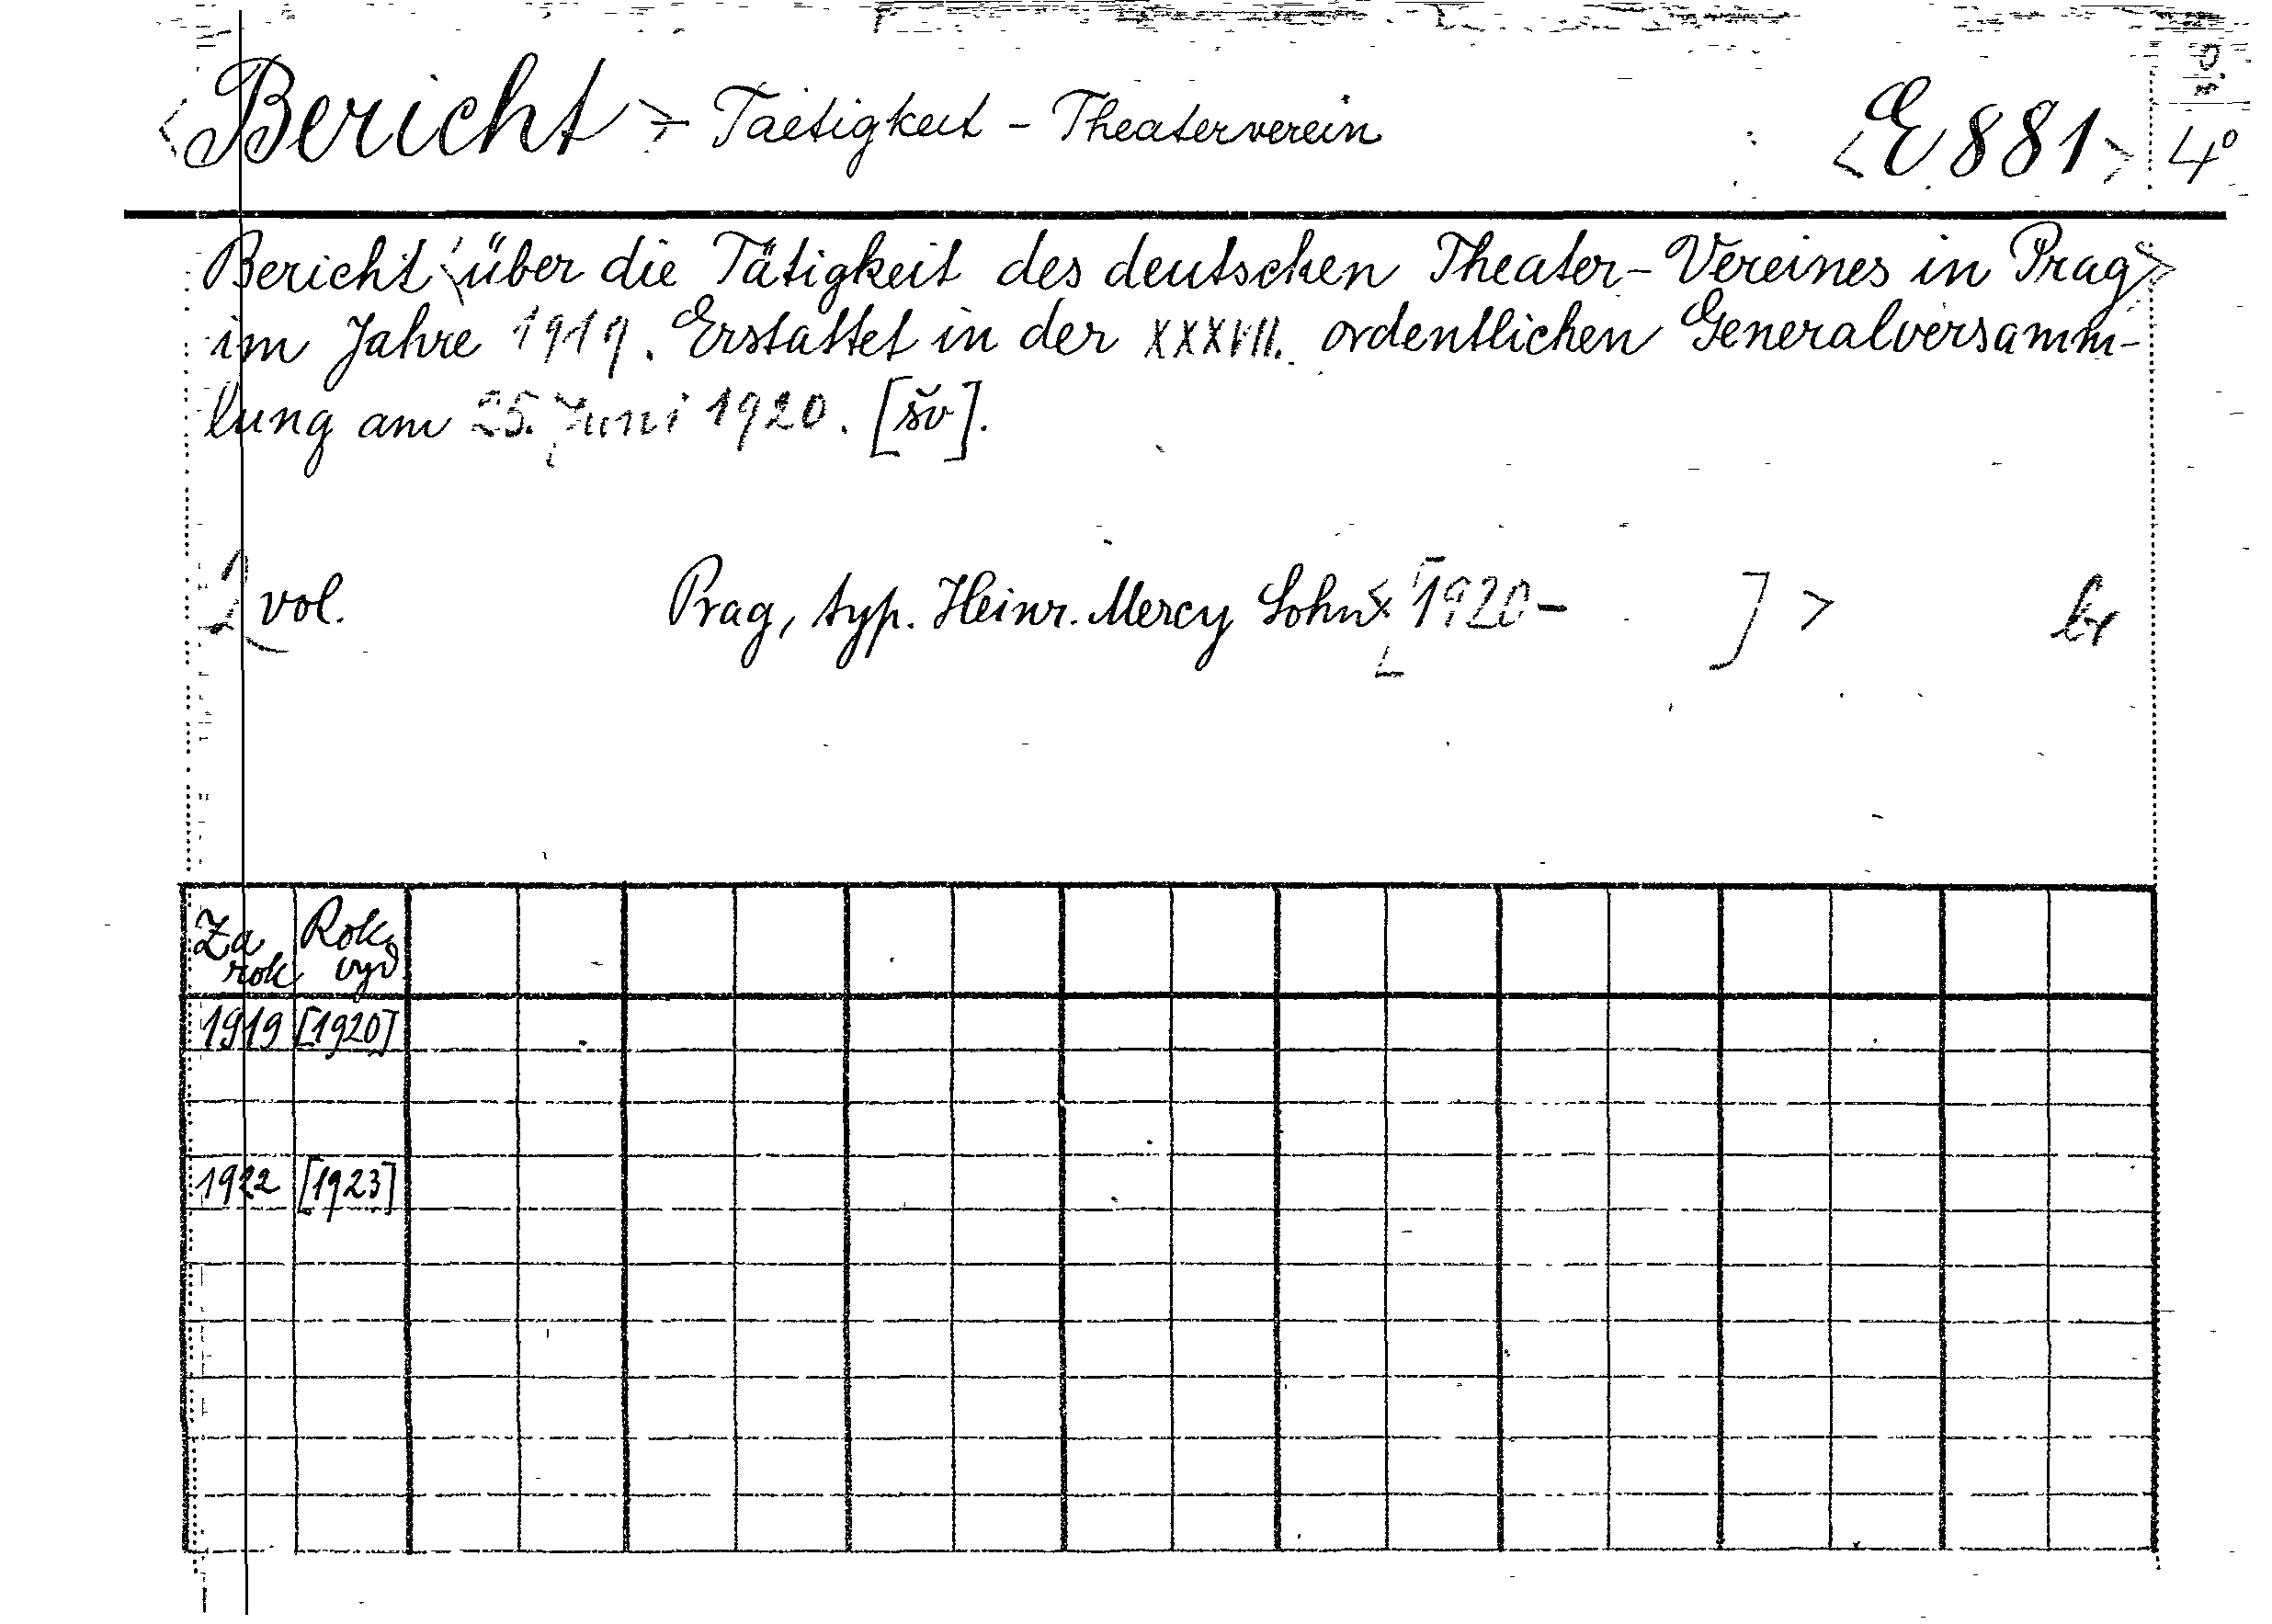 <Bericht> - Taetigkeit - Theaterverein <E 881> 4°
Bericht <über die Tätigkeit des deutschen Theater-Vereines in Prag>
im Jahre 1919. Erstattet in der XXXVII. ordentlichen Generalversamm-
lung am 25. Juni 1920. [šv].
2 vol. Prag, typ. Heinr. Mercy Sohn < [1920- ] >
Za rok Rok vyd.
1919 [1920]
1922 [1923]